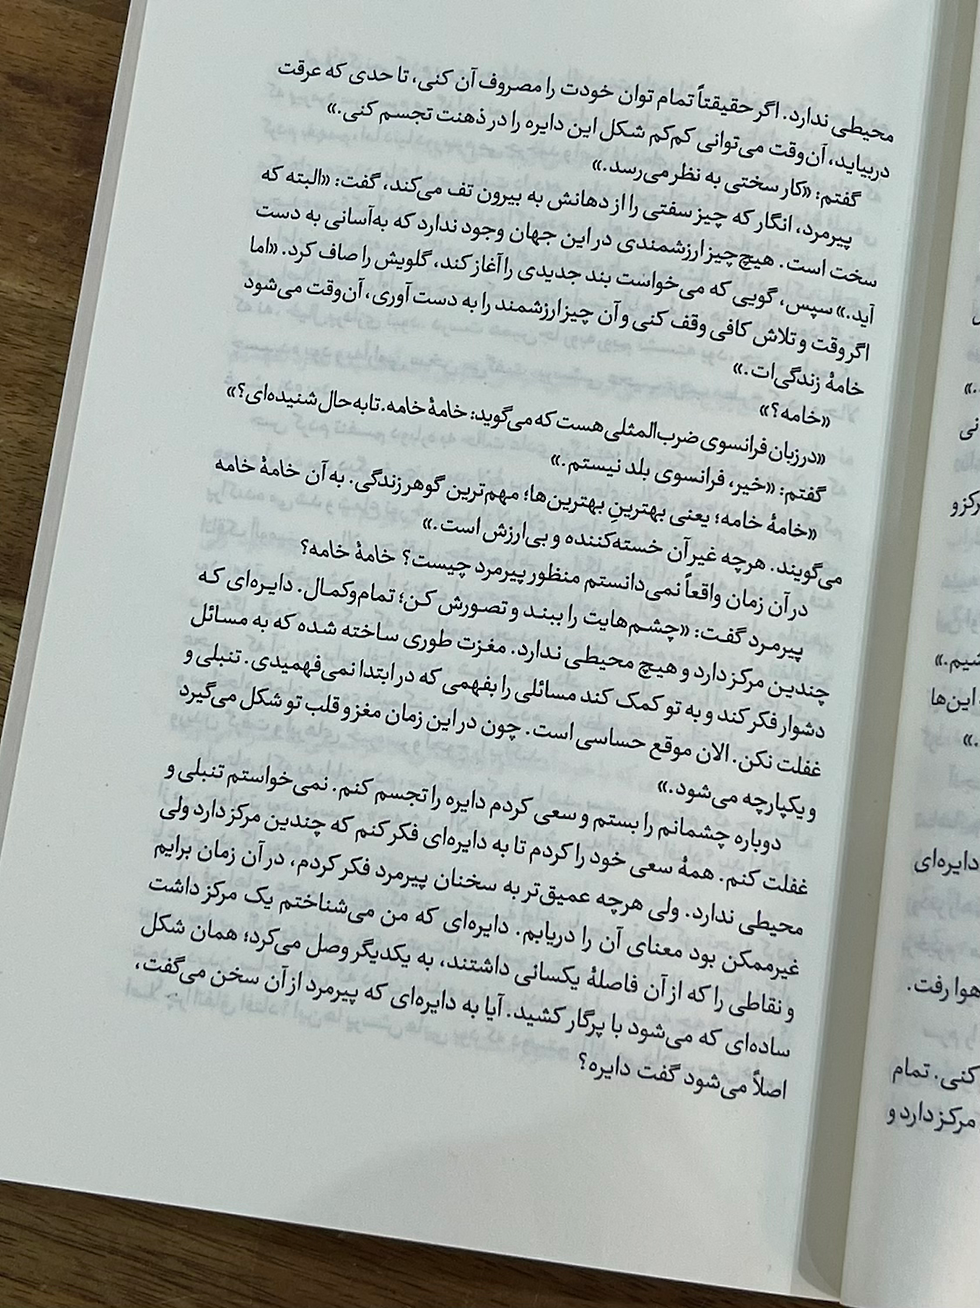 محیطی ندارد. اگر حقیقتاً تمام توان خودت را مصروف آن کنی، تا حدی که عرقت
دربیاید، آن‌وقت می‌توانی کم‌کم شکل این دایره را در ذهنت تجسم کنی.»
گفتم: «کار سختی به نظر می‌رسد.»
پیرمرد، انگار که چیز سفتی را از دهانش به بیرون تف می‌کند، گفت: «البته که
سخت است. هیچ‌چیز ارزشمندی در این جهان وجود ندارد که به‌آسانی به دست
آید.» سپس، گویی که می‌خواست بند جدیدی را آغاز کند، گلویش را صاف کرد. «اما
اگر وقت و تلاش کافی وقف کنی و آن چیز ارزشمند را به دست آوری، آن‌وقت می‌شود
خامهٔ زندگی‌ات.»
«خامه؟»
«در زبان فرانسوی ضرب‌المثلی هست که می‌گوید: خامهٔ خامه. تا به حال شنیده‌ای؟»
گفتم: «خیر، فرانسوی بلد نیستم.»
«خامهٔ خامه؛ یعنی بهترینِ بهترین‌ها؛ مهم‌ترین گوهر زندگی. به آن خامهٔ خامه
می‌گویند. هرچه غیر آن خسته‌کننده و بی‌ارزش است.»
در آن زمان واقعاً نمی‌دانستم منظور پیرمرد چیست؟ خامهٔ خامه؟
پیرمرد گفت: «چشم‌هایت را ببند و تصورش کن؛ تمام‌وکمال. دایره‌ای که
چندین مرکز دارد و هیچ محیطی ندارد. مغزت طوری ساخته شده که به مسائل
دشوار فکر کند و به تو کمک کند مسائلی را بفهمی که در ابتدا نمی‌فهمیدی. تنبلی و
غفلت نکن. الان موقع حساسی است. چون در این زمان مغز و قلب تو شکل می‌گیرد
و یکپارچه می‌شود.»
دوباره چشمانم را بستم و سعی کردم دایره را تجسم کنم. نمی‌خواستم تنبلی و
غفلت کنم. همهٔ سعی خود را کردم تا به دایره‌ای فکر کنم که چندین مرکز دارد ولی
محیطی ندارد. ولی هرچه عمیق‌تر به سخنان پیرمرد فکر کردم، در آن زمان برایم
غیرممکن بود معنای آن را دریابم. دایره‌ای که من می‌شناختم یک مرکز داشت
و نقاطی را که از آن فاصلهٔ یکسانی داشتند، به یکدیگر وصل می‌کرد؛ همان شکل
ساده‌ای که می‌شود با پرگار کشید. آیا به دایره‌ای که پیرمرد از آن سخن می‌گفت،
اصلاً می‌شود گفت دایره؟
این‌ها
دایره‌ای
هوا رفت.
کنی. تمام
مرکز دارد و